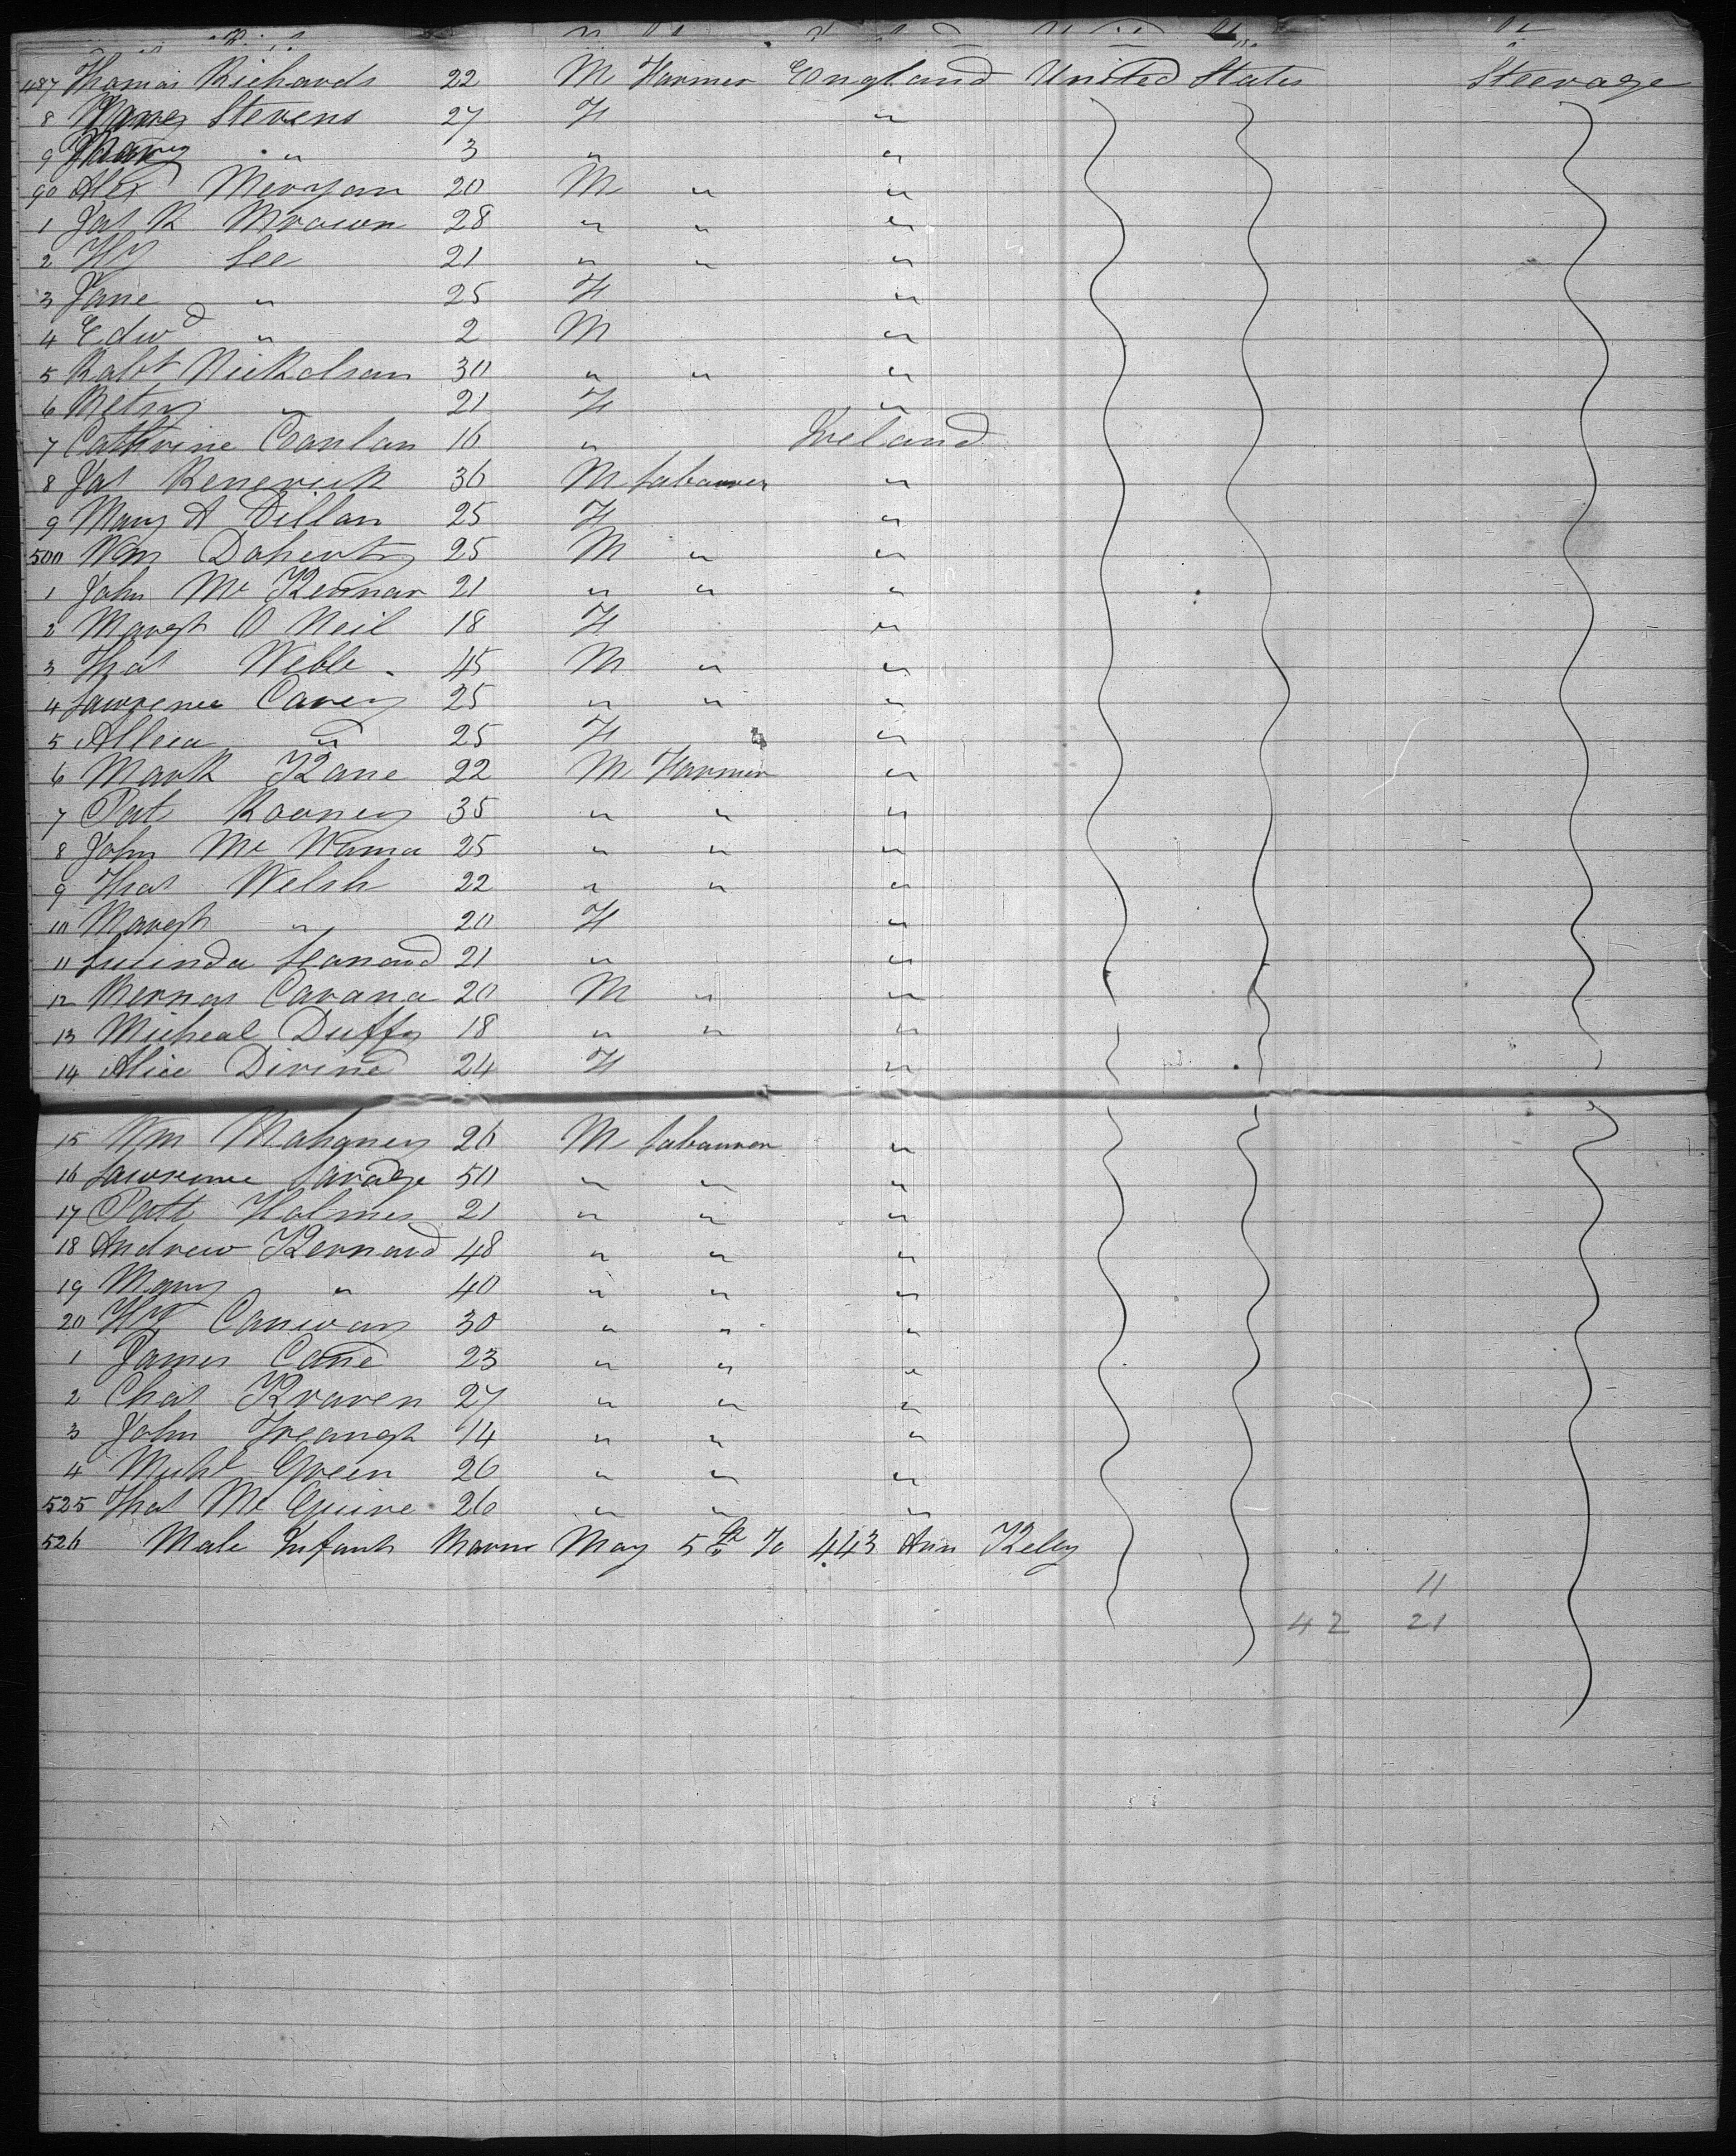 487 Thomas Richards 22 M Farmer England United States Steerage
8 Stevens 27 F "
9 Mary " 3 " "
90 Alex 20 M " "
1 Jas R Brown 28 " " "
2 Hy Lee 21 " " "
3 Jane " 25 F "
4 Edwd " 2 M "
5 Robt Nickolson 30 " " "
6 Betsy " 21 F "
7 Cathrine Conlan 16 " Ireland
8 Jas Renerick 36 M Labourer "
9 Mary A Dillon 25 F "
500 Wm Doherty 25 M " "
1 John Mc Kernar 21 " " "
2 Margt O Neil 18 F "
3 Thos Webb 45 M " "
4 Lawrence Carey 25 " " "
5 " 25 F "
6 Mark Kane 22 M Farmer "
7 Pat Rooney 35 " " "
8 John Mc 25 " " "
9 Thos Welsh 22 " " "
10 Margt " 20 F "
11 Lucinda Leonard 21 " "
12 Bernar Cavana 20 M " "
13 Micheal Duffy 18 " " "
14 Alice Divine 24 F "
15 Wm Mahoney 26 M Labourer "
16 Lawrence Savage 50 " " "
17 Patk Holmes 21 " " "
18 Andrew Kernard 48 " " "
19 Mary " 40 " " "
20 Hy Conway 30 " " "
1 James Cane 23 " " "
2 Chas Kraven 27 " " "
3 John 14 " " "
4 Michl Green 26 " " "
525 Thos Mc Guire 26 " " "
526 Male Infant Born May 5th To 443 Ann Kelly
11
42 21